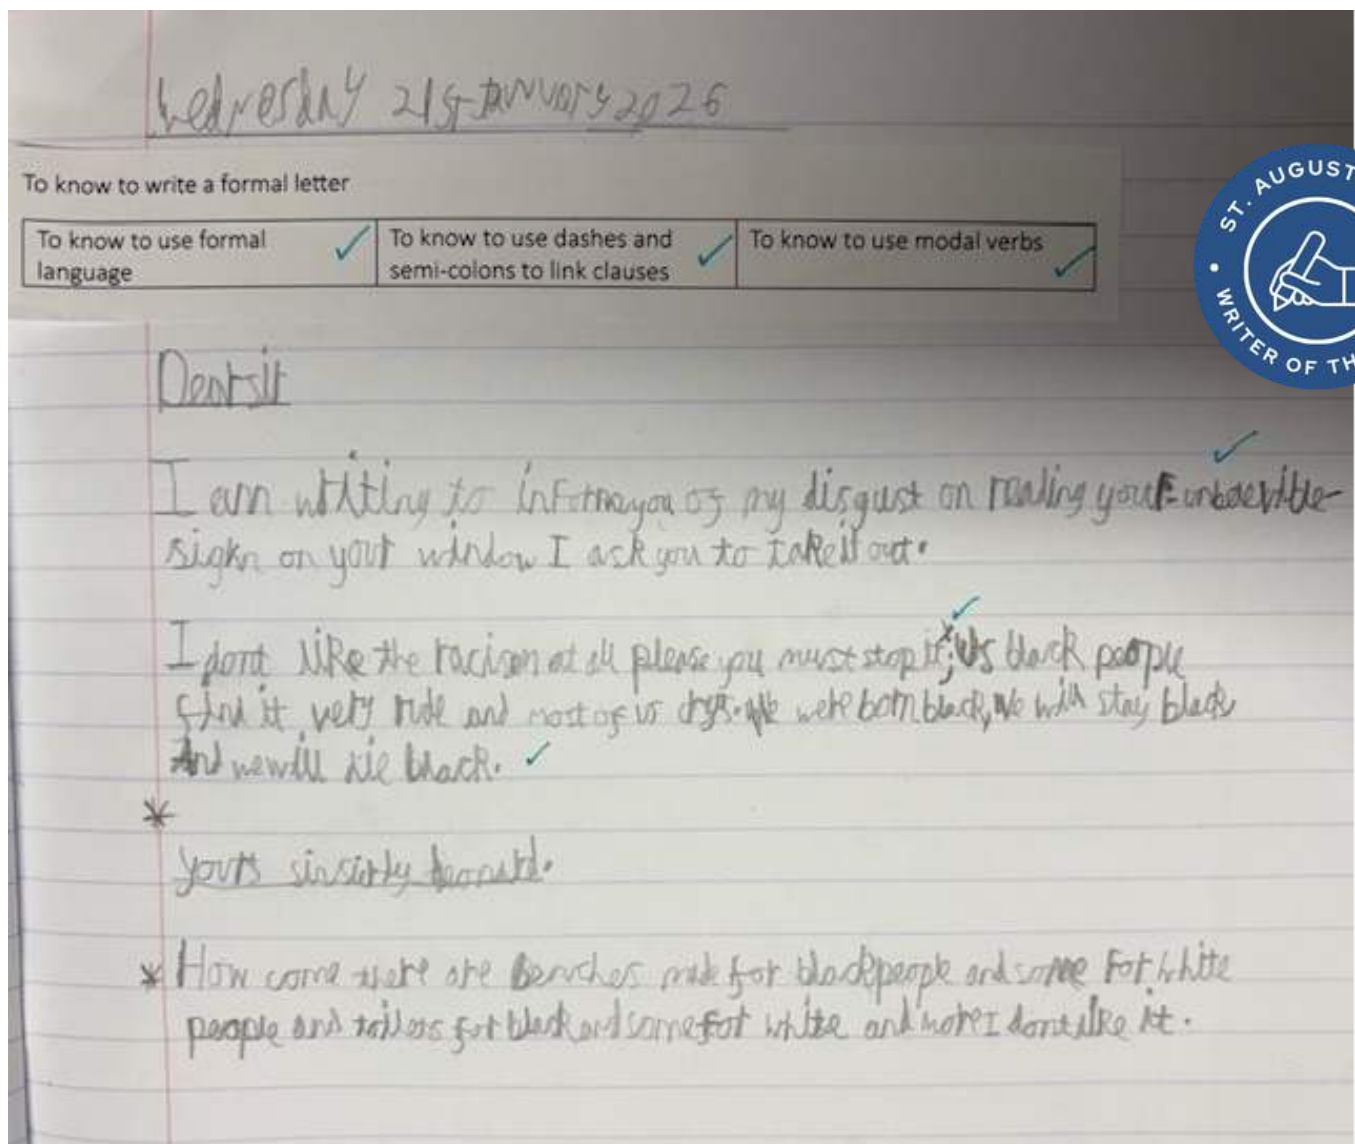 Wednesday 21st January 2026
To know to write a formal letter
To know to use formal language
To know to use dashes and semi-colons to link clauses
To know to use modal verbs
ST. AUGUST
WRITER OF TH
Dear sir
I am writing to inform you of my disgust on reading your
sign on your window I ask you to take it out.
I dont like the racism at all please you must stop it; Us black people
find it very rude and most of us crys. We were born black, we will stay black
And we will die black.
*
yours sinsirly
* How come there are benches made for black people and some For white
people and for black and some for white and more I dont like it.